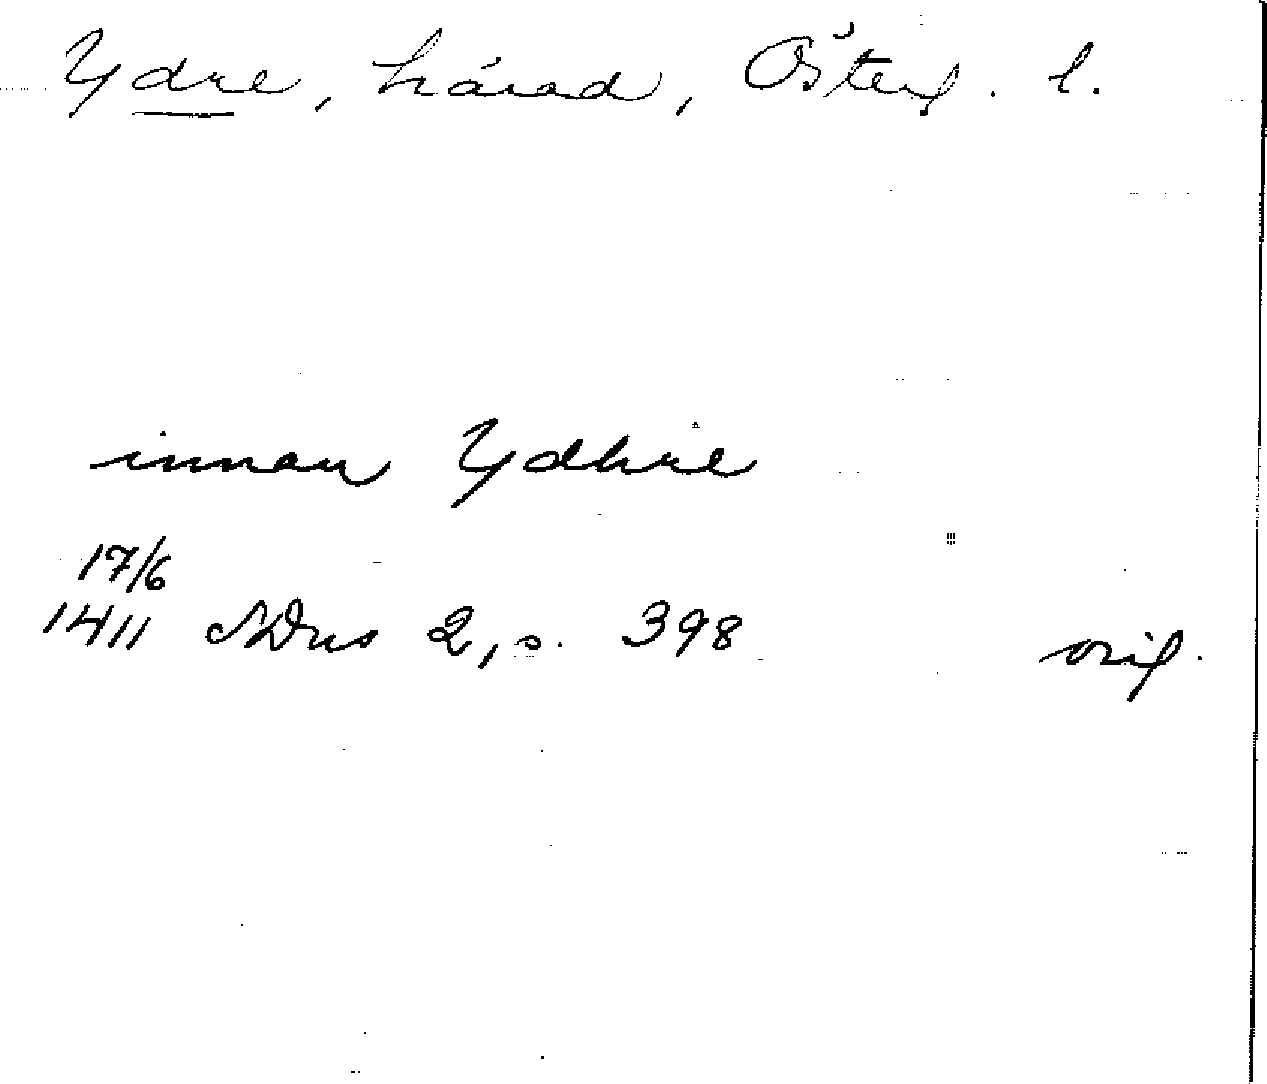 Ydre, härad, Österg. l.
innan Ydhre
17/6
1411 SDns 2, s. 398 orig.